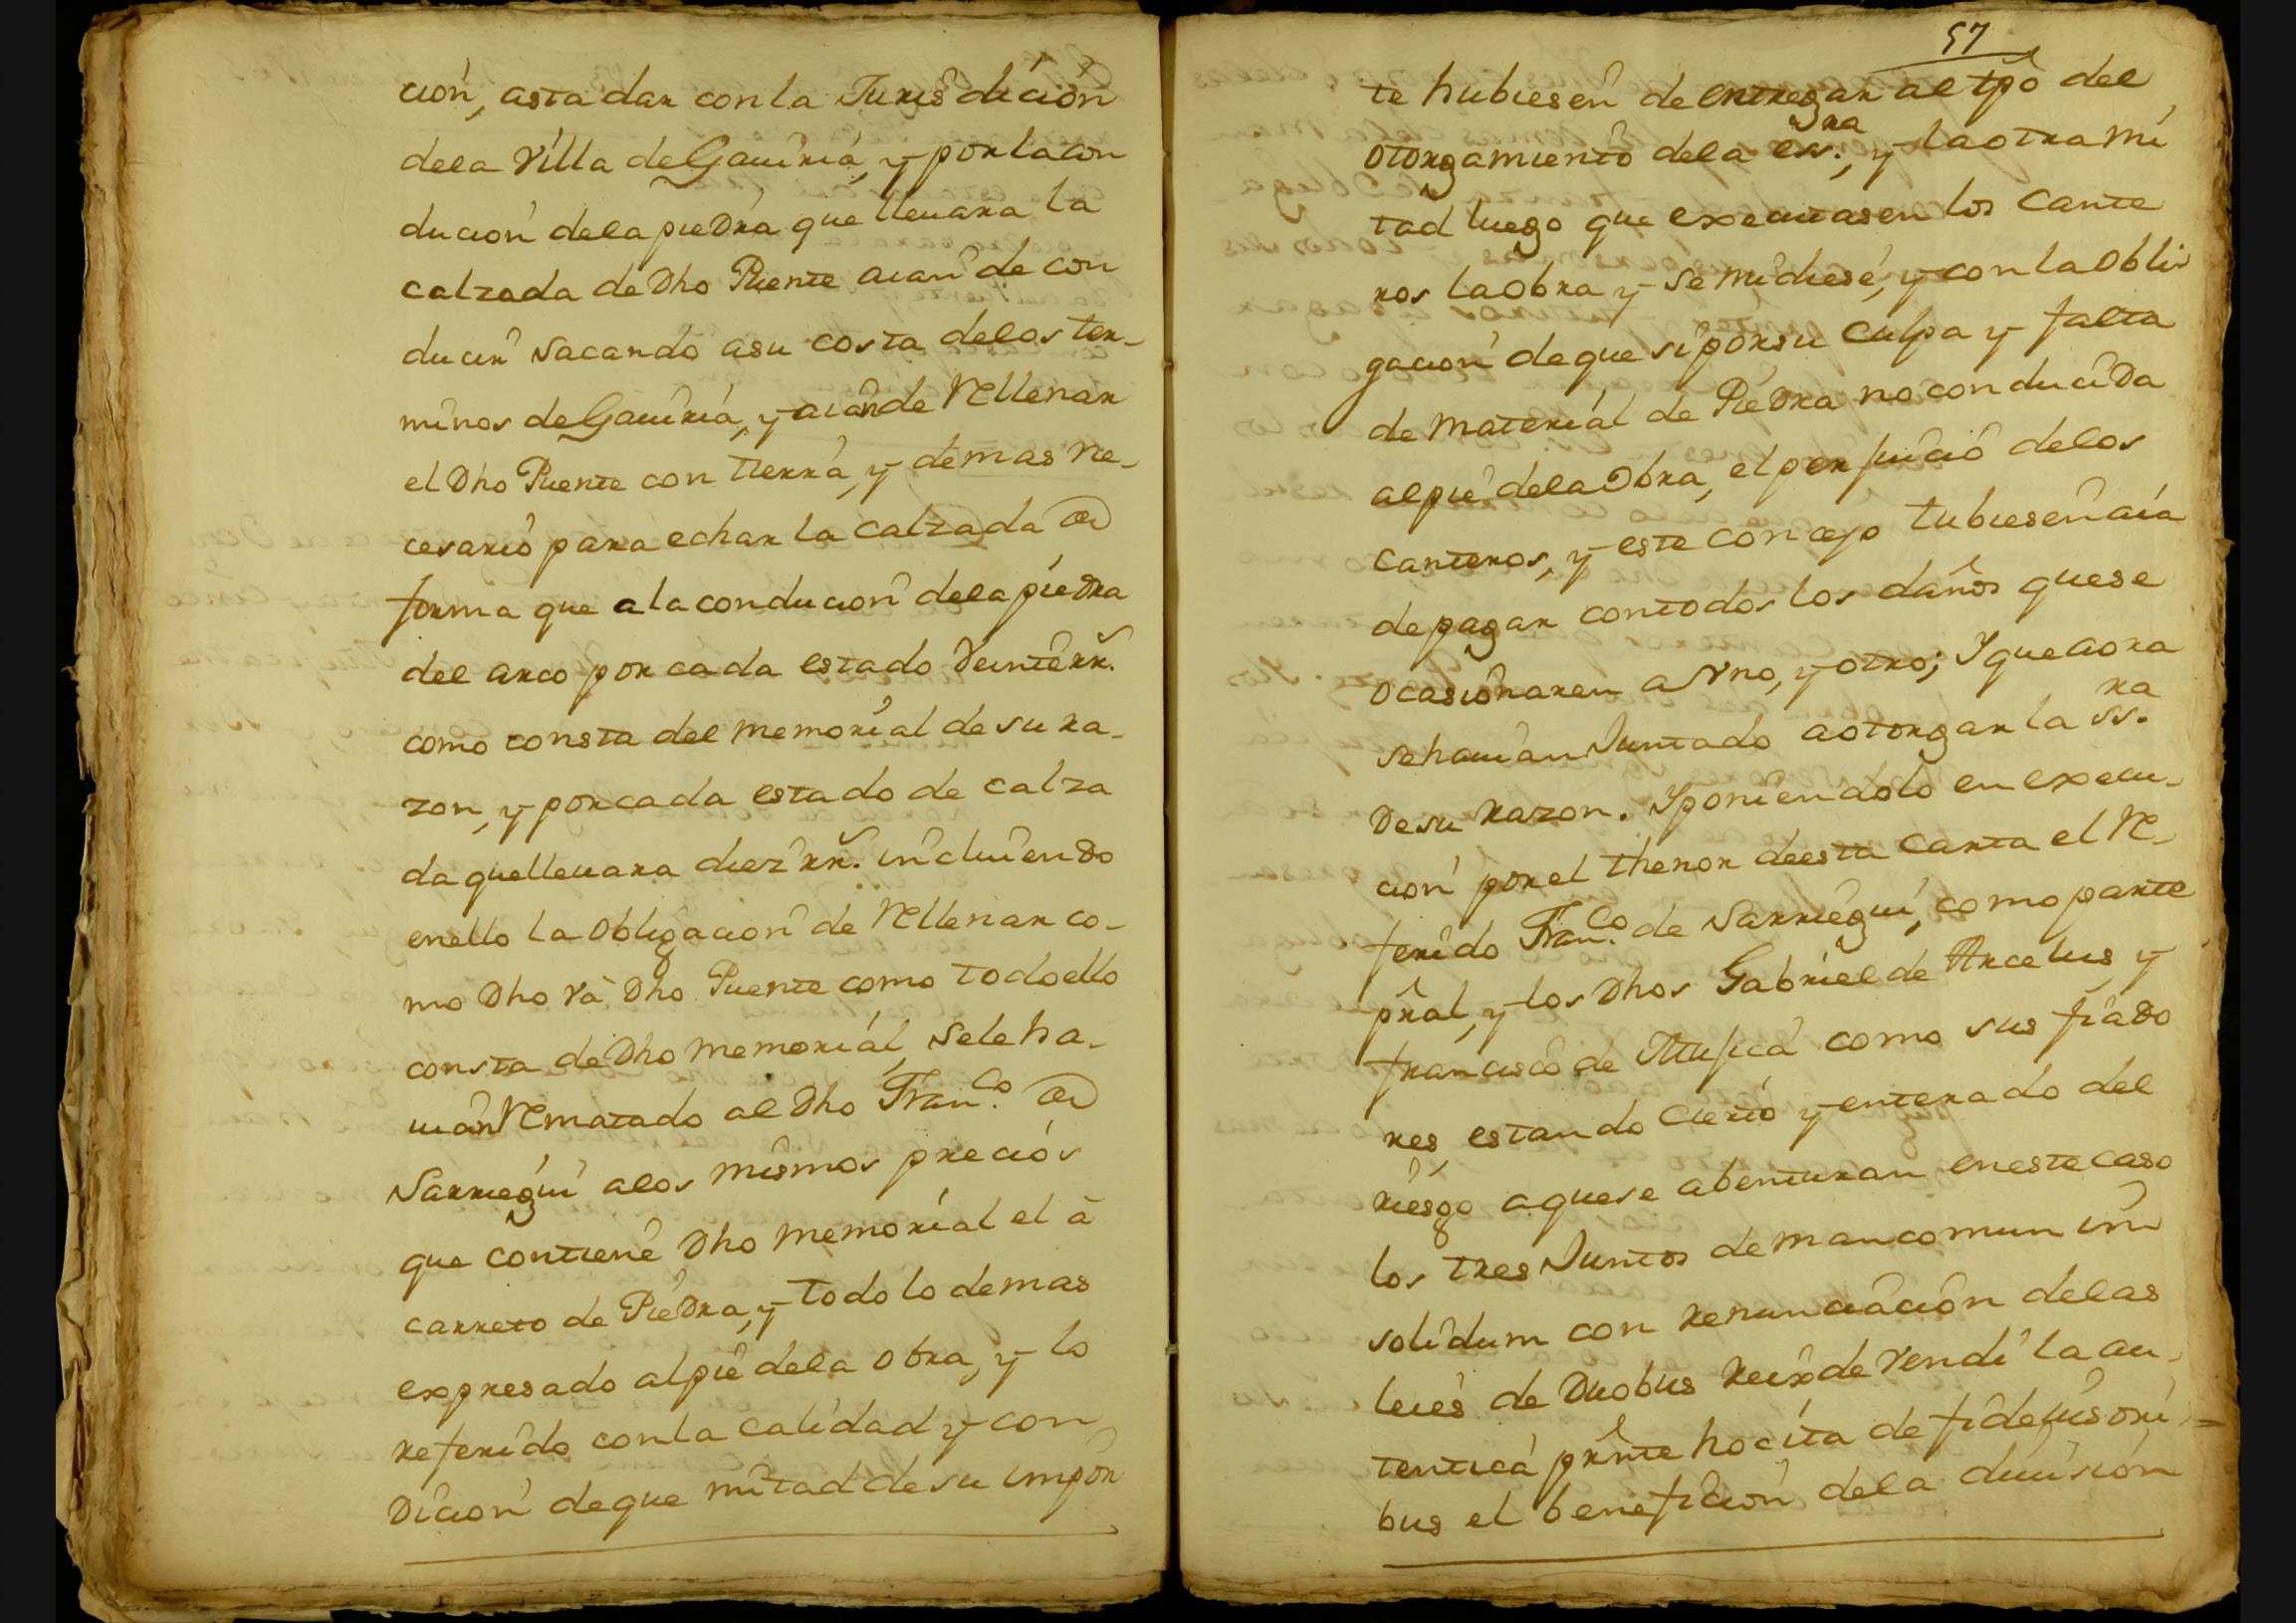 cion, asta dar con la Jurisdicion
dela Villa de Gauiria, y por la con
ducion dela piedra que lleuara la
calzada de Dho Puente aian de con
ducir sacando asu costa delos ter-
minos de Gauiria, y aian de Rellenar
el Dho Puente con tierra, y demas ne-
cesario para echar la calzada de
forma que a la conducion dela piedra
del arco por cada estado Veinte rr.
como consta del memorial de su ra-
zon, y por cada estado de calza
da que lleuara diez rr. incluiendo
enello la Obligacion de Rellenar co-
mo Dho Va Dho Puente como todo ello
consta de Dho memorial, se le ha-
uian Rematado al Dho Fran.co de
Sarriegui alos mismos precios
que contiene Dho memorial el a
carreto de Piedra, y todo lo demas
expresado al pie dela obra, y lo
referido con la calidad y con
Dicion de que mitad de su impor
57
te hubiesen de entregar al tpo del
otorgamiento dela es.ra, y la otra mi
tad luego que executasen los Cante
ros la obra y se midiese, y con la Obli
gacion de que si por su culpa y falta
de material de Piedra no conducida
al pie dela Obra, el perjuicio delos
Canteros, y este concejo tubiesen aia
de pagar con todos los daños que se
ocasionaren a Vno, y otro; Y que aora
se hauian Juntado a otorgar la ss.ra
De su Razon. Y poniendolo en execu-
cion por el thenor de esta Carta el Re-
ferido Fran.co de Sarriegui, como parte
prãl, y los Dhos Gabriel de Arcelus y
francisco de Mujica como sus fiado
res, estando Cierto y enterado del
riesgo aque se abenturan en este caso
los tres Juntos de mancomun in
solidum con Renunciacion delas
leies de Duobus Reix de Vendi la au-
tentica prñte hocita de fidejusori-
bus el beneficion dela diuision